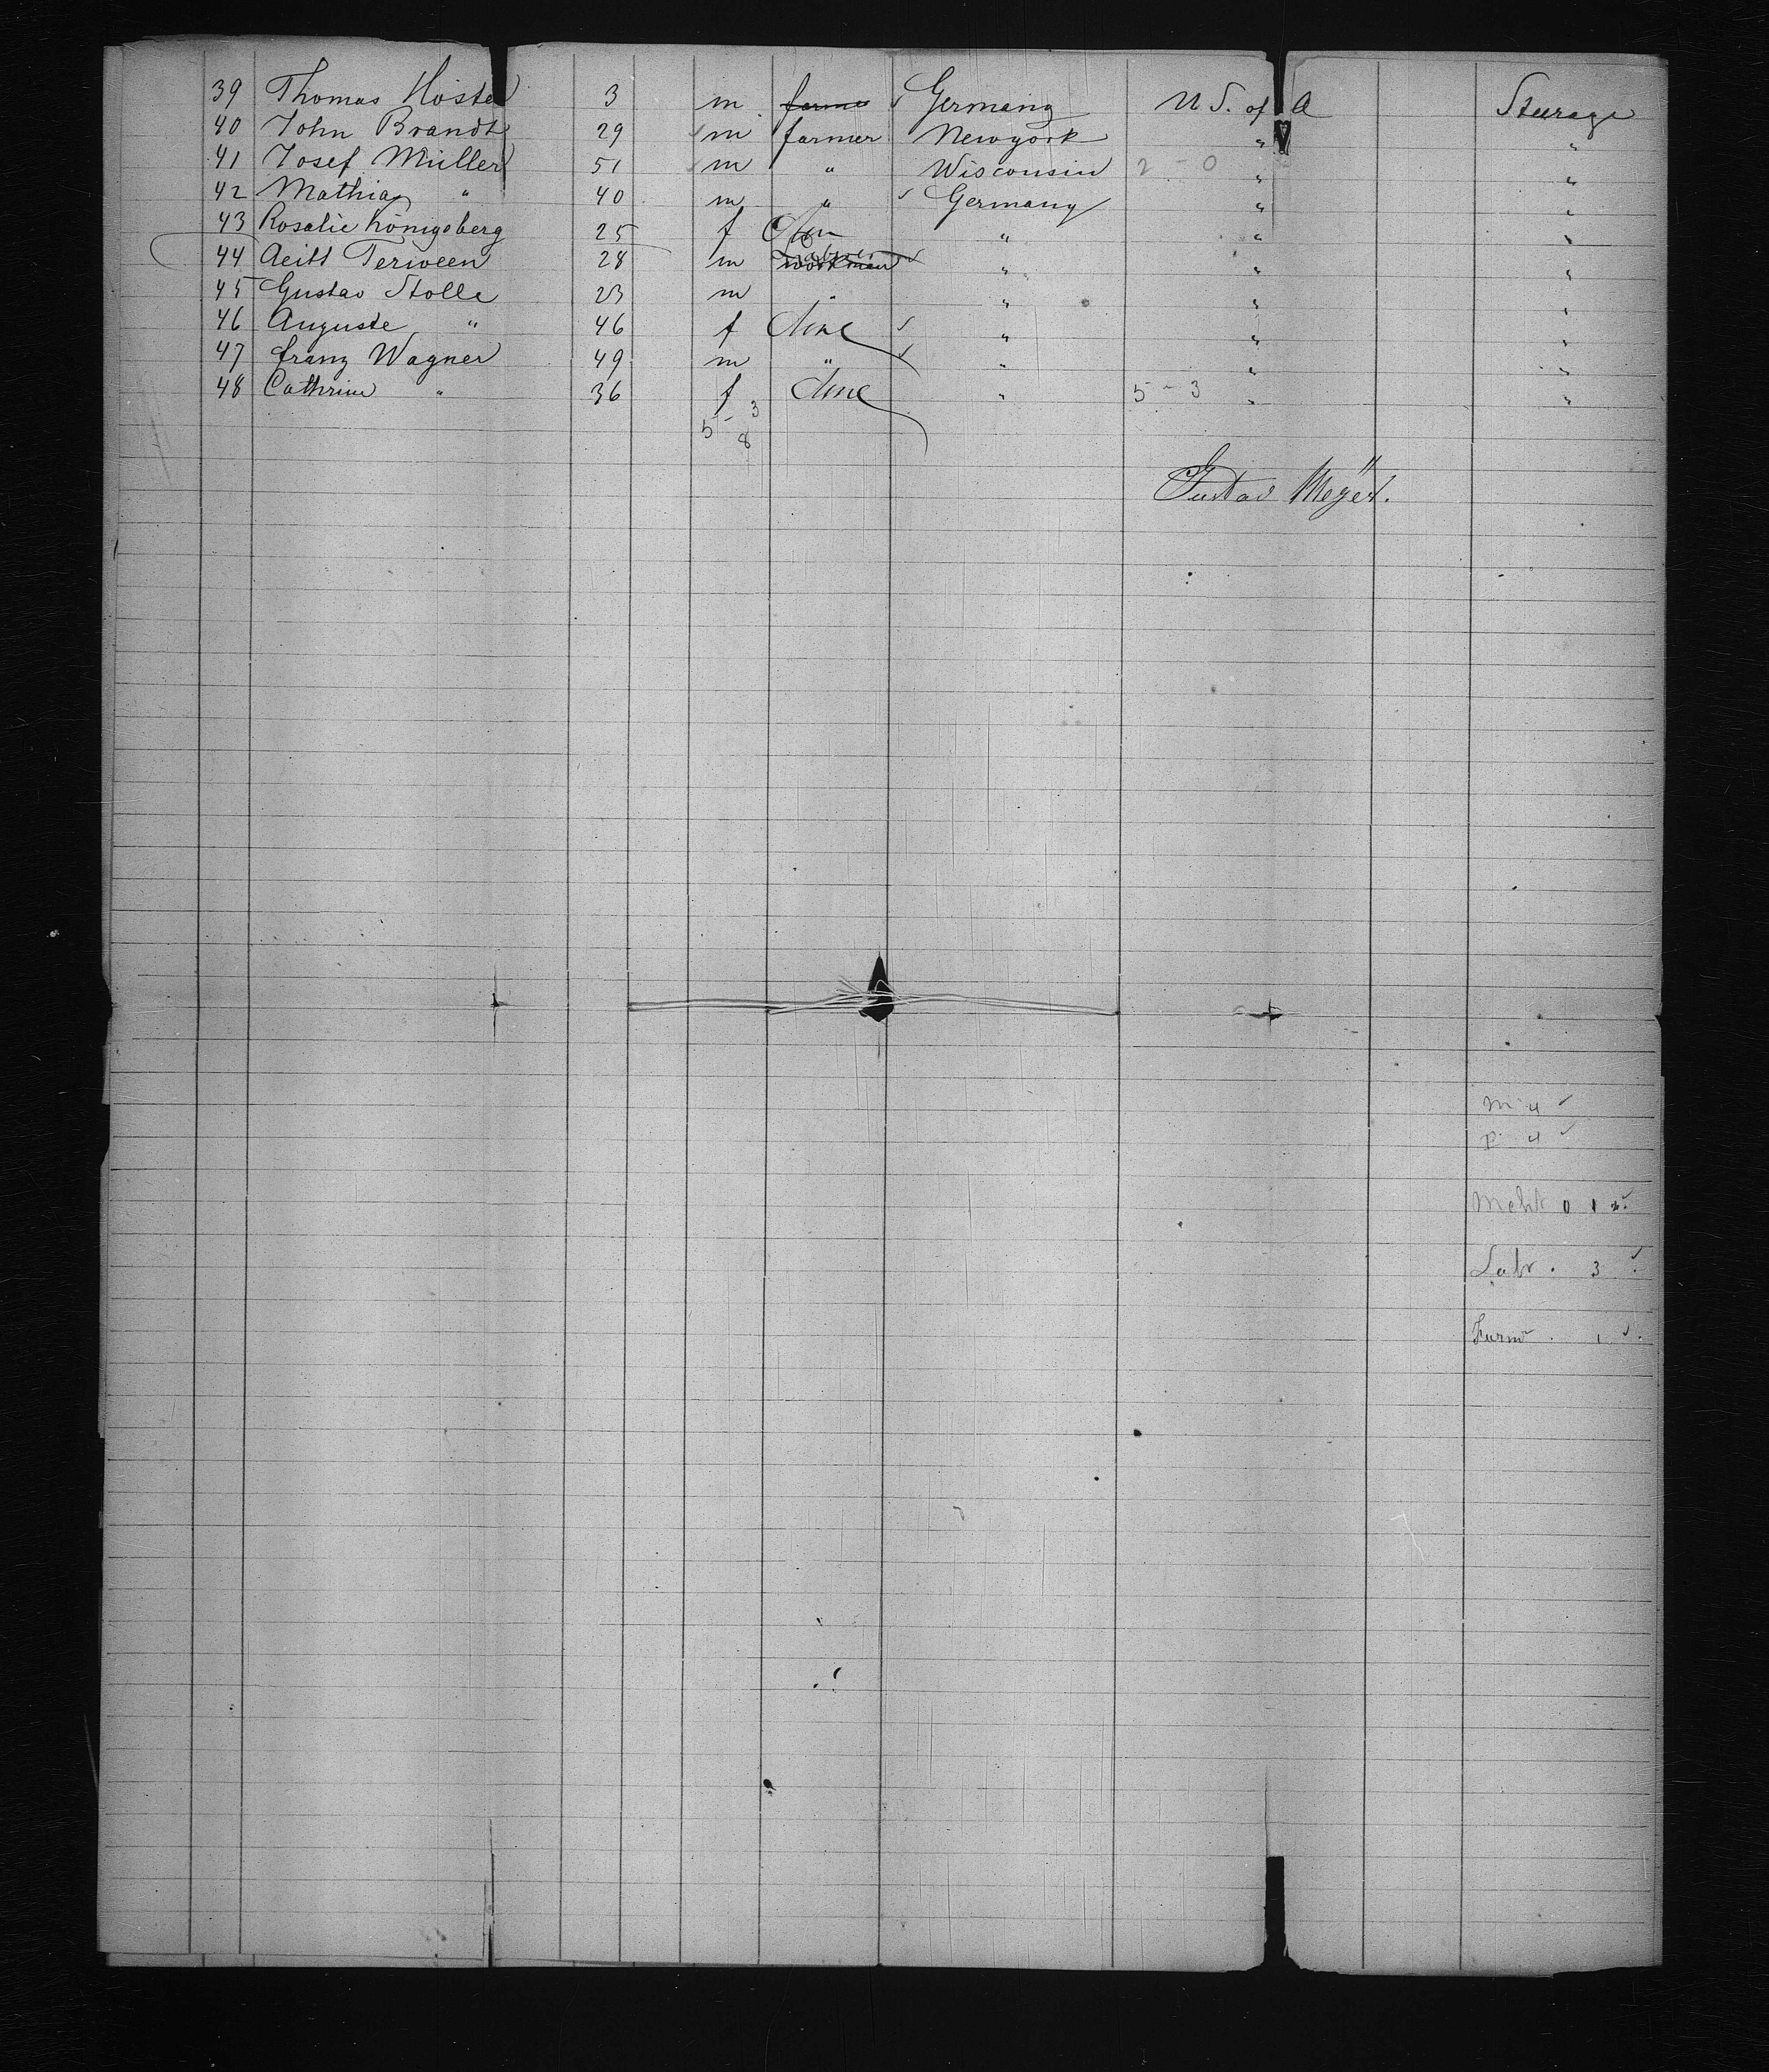 39 Thomas Höste 3 m farmer Germany U S. of A Steerage
40 John Brandt 29 m farmer Newyork " "
41 Josef Müller 51 m " Wisconsin 2 - 0 " "
42 Mathias " 40 m " Germany " "
43 Rosalie Königsberg 25 f " " "
44 Aeilt Terween 28 m workman " " "
45 Gustav Stolle 23 m " " " "
46 Auguste " 46 f None " " "
47 franz Wagner 49 m " " " "
48 Cathrine " 36 f None " 5 - 3 " "
5 - 3
8
Gustav Meyer.
m 4 ✓
F 4 ✓
Mcht 0 1 ✓
Labr . 3 ✓
Farmr . 1 ✓